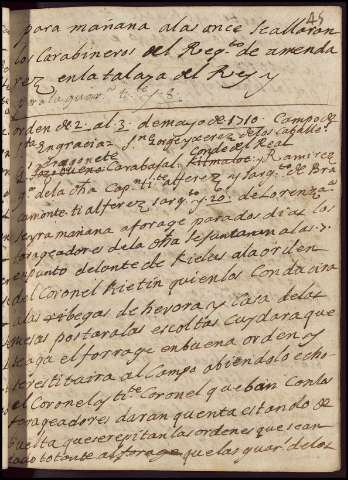 45
para mañana alas once se allaran
los Carabineros del Reg.to de amenda
rez en la talaya del Rey y
para la guar.a
orden de 2. al 3. de mayo de 1710. Campo de
s.ta Engracia s.n Jorge y a
Aragonete Conde del Real
Carabajal Kilmaloc y Ramirez
g.a de la dha Cap.n ti.te alferez y sarg.to de Bra
camonte ti alferez sarg.to y 20. de Lorenzana
se yra mañana a forage para dos dias los
forageadores de la dha se juntaran a las
en punto delante de Rielas ala orden
del Coronel Rietin quien los Conducira
alas ribegas de hevora y Casa de las
postara las escoltas Cuydara que
se aga el forrage en buena orden y
se restituira al Campo abiendolo echo
el Coronel y ti.te Coronel que ban Con los
forageadores daran quenta estando de
buelta que se repitan las ordenes que sean
dado tocante al forage que las guar.s de los